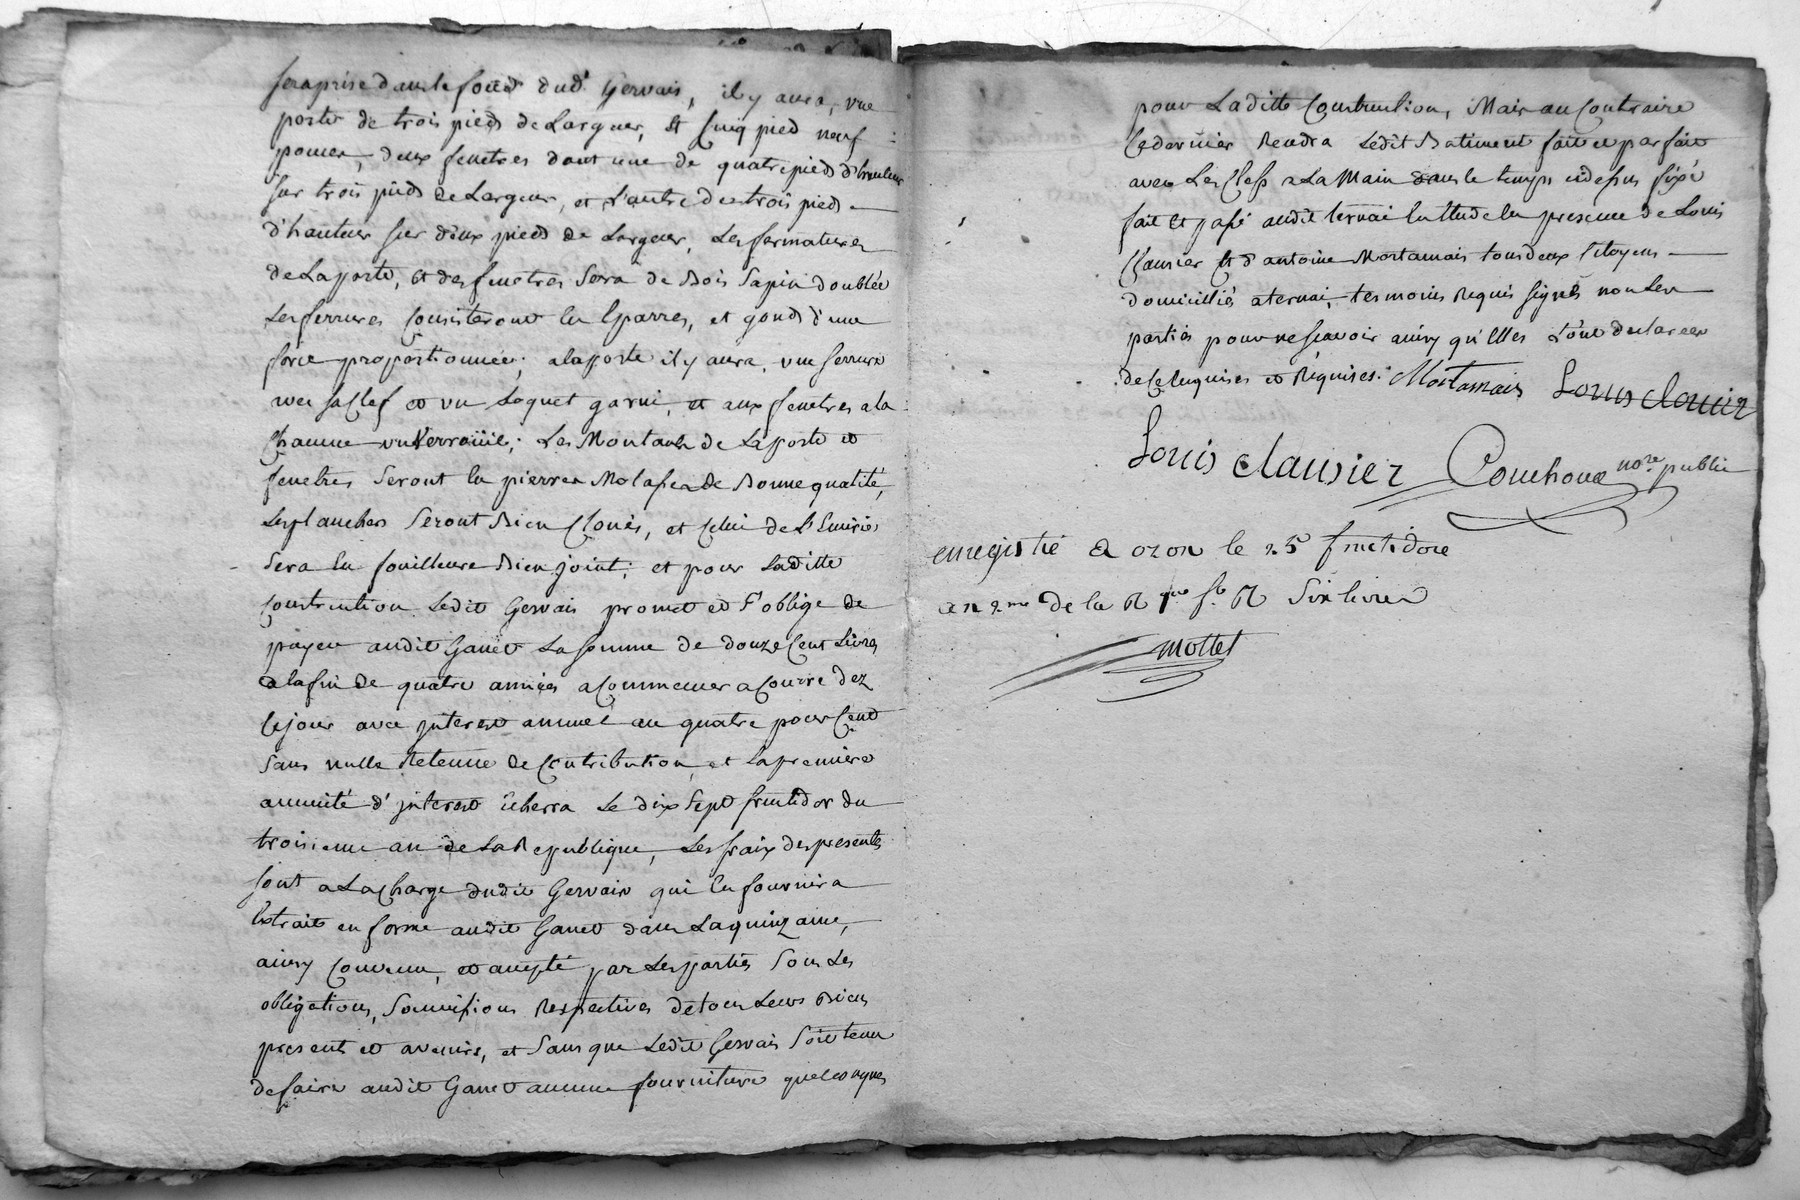 sera prise dans le fond dud. Gervais, il y aura, une
porte de trois pieds de Largeur, et cinq pied neuf
pouces, deux fenetres dont une de quatre pieds d'hauteur
sur trois pieds de Largeur, et l'autre de trois pieds
d'hauteur sur deux pieds de Largeur, Les fermatures
de La porte, et des fenetres Sera de Bois Sapin doublée
Les ferrures Consisteront En Eparres, et gonds d'une
force proportionnée; a la porte il y aura, une serrure
avec sa Clef et un Loquet garni, et aux fenetres a la
Chacune un Verrouïil; Les Montants de La porte et
fenetres Seront En pierres Molasse de Bonne qualité,
Les planchers Seront Bien Cloués, et Celui de
Sera En fouilleure Bien joint; et pour Laditte
Construction Ledit Gervais promet et s'oblige de
payer audit Ganet La somme de douze Cent Livres
a la fin de quatre années a Commencer a Courre dez
Ce jour avec jnterest annuel au quatre pour Cent
Sans nulle Retenue de Contribution, et La premiere
annuité d'jnterest Echerra Le dix Sept fructidor du
troisieme an de La Republique, Les fraix des presentes
sont a La Charge dudit Gervais qui En fournira
Extrait en forme audit Ganet dans La quinzaine,
ainsy Convenu, et accepté par Les parties Sous Les
obligations, Soumissions Respectives de tous Leurs Biens
presents et avenirs, et Sans que Ledit Gervais Soit tenu
de faire audit Ganet aucune fourniture quelconques
pour Laditte Construction, Mais au Contraire
Ce dernier Rendra Ledit Batiment fait et parfait
avec Les Clefs a La Main dans le temps cidessus fixé
fait Et passé audit ternai En Etude En presence de Louis
Clausier Et d'antoine Mortamais tous deux Citoyens
domicilliés a ternai, tesmoins Requis signés non Les
parties pour ne sçavoir ainsy qu'Elles L'ont declarees
de Ce Enquises et Requises. Mortamais Louis clausier
Louis clausier Couchoud nore. public
enregistré a ozon le 25 fructidore
an 2me de la R que R Six livres
mottet